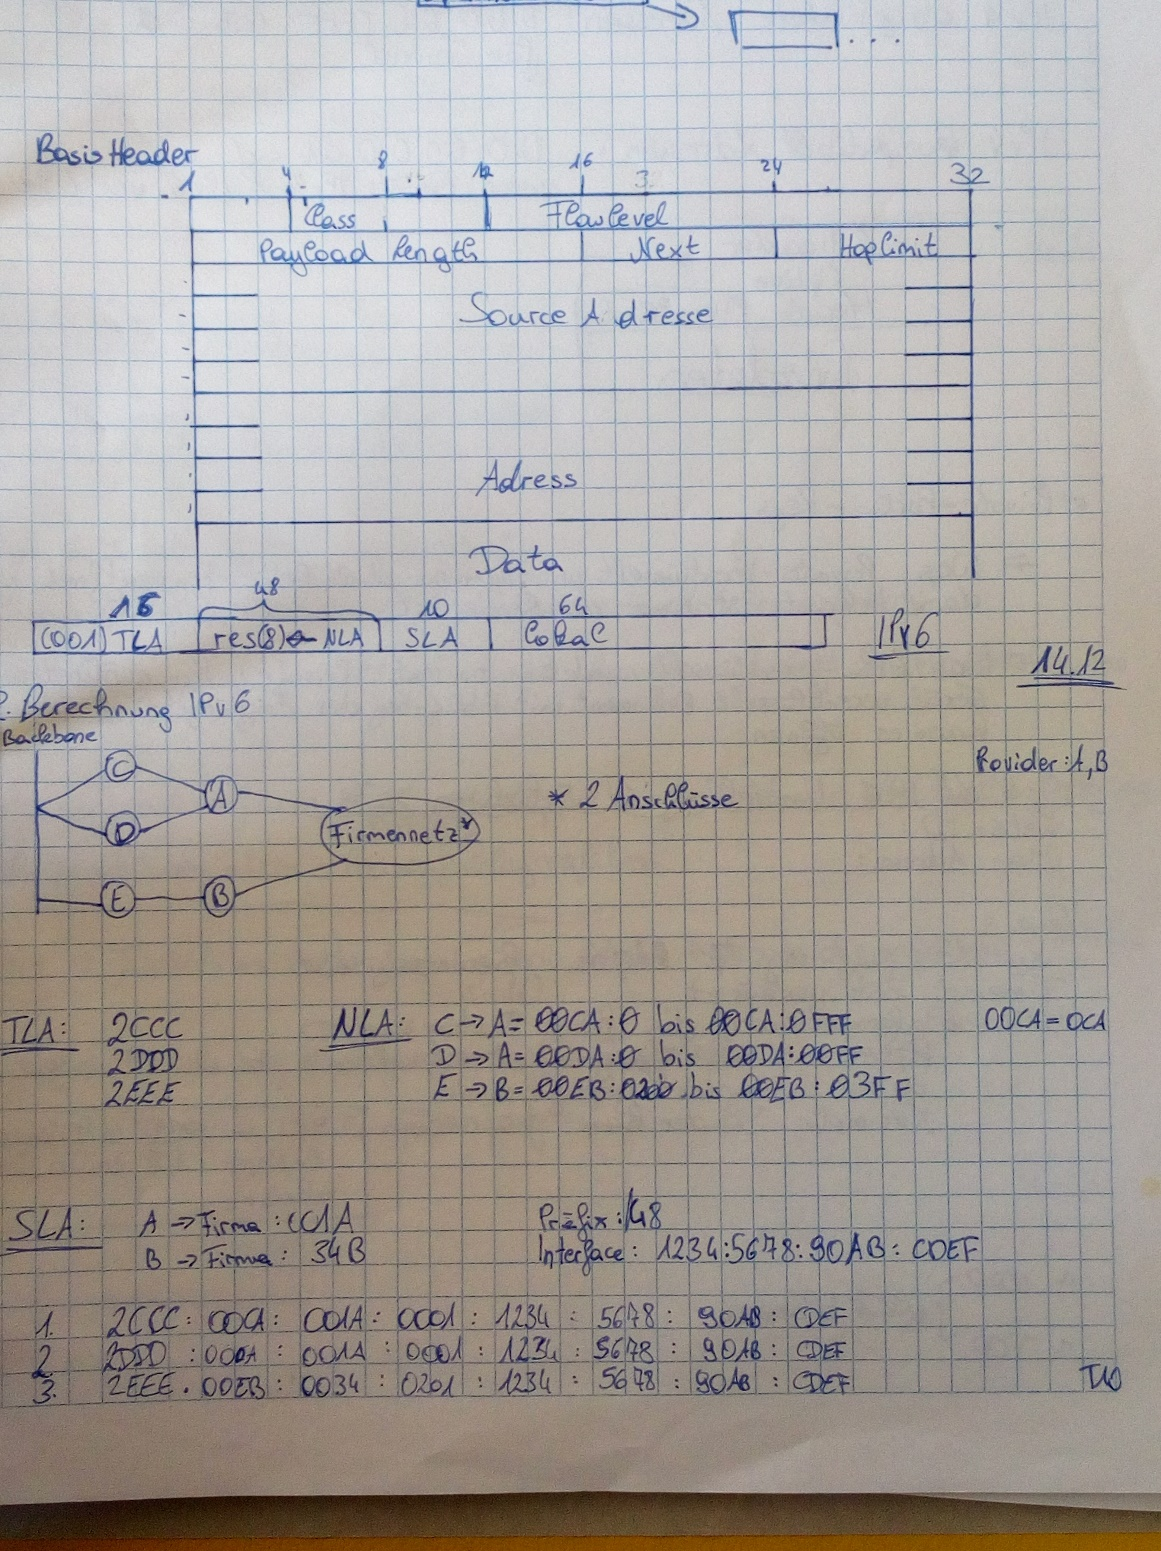 ...
Basis Header
1 4 8 12 16 24 32
Class Flowlevel
Payload length Next Hoplimit
Source Adresse
Adress
Data
48
16 10 64
(001) TLA res(8) NLA SLA Lokal IPv6
14.12
2. Berechnung IPv6
Backbone
C Provider: A,B
A * 2 Anschlüsse
D Firmennetz*
E B
TLA: 2CCC NLA: C → A = 00CA:0 bis 00CA:0FFF 00CA = 0CA
2DDD D → A = 00DA:0 bis 00DA:00FF
2EEE E → B = 00EB:0200 bis 00EB:03FF
SLA: A → Firma: 001A Präfix: /48
B → Firma: 34B Interface: 1234:5678:90AB:CDEF
1. 2CCC: 00CA: 001A: 0001: 1234: 5678: 90AB: CDEF
2 2DDD: 00DA: 001A: 0001: 1234: 5678: 90AB: CDEF
3. 2EEE. 00EB: 0034: 0201: 1234: 5678: 90AB: CDEF